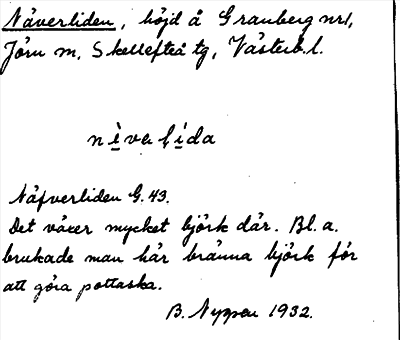 Näverliden, höjd å Granberg nr 1,
Jörn sn, Skellefteå tg, Västerb. l.
nèvalída
Näfverliden G. 43.
Det växer mycket björk där. Bl. a.
brukade man här bränna björk för
att göra pottaska.
B. Nyppen 1932.